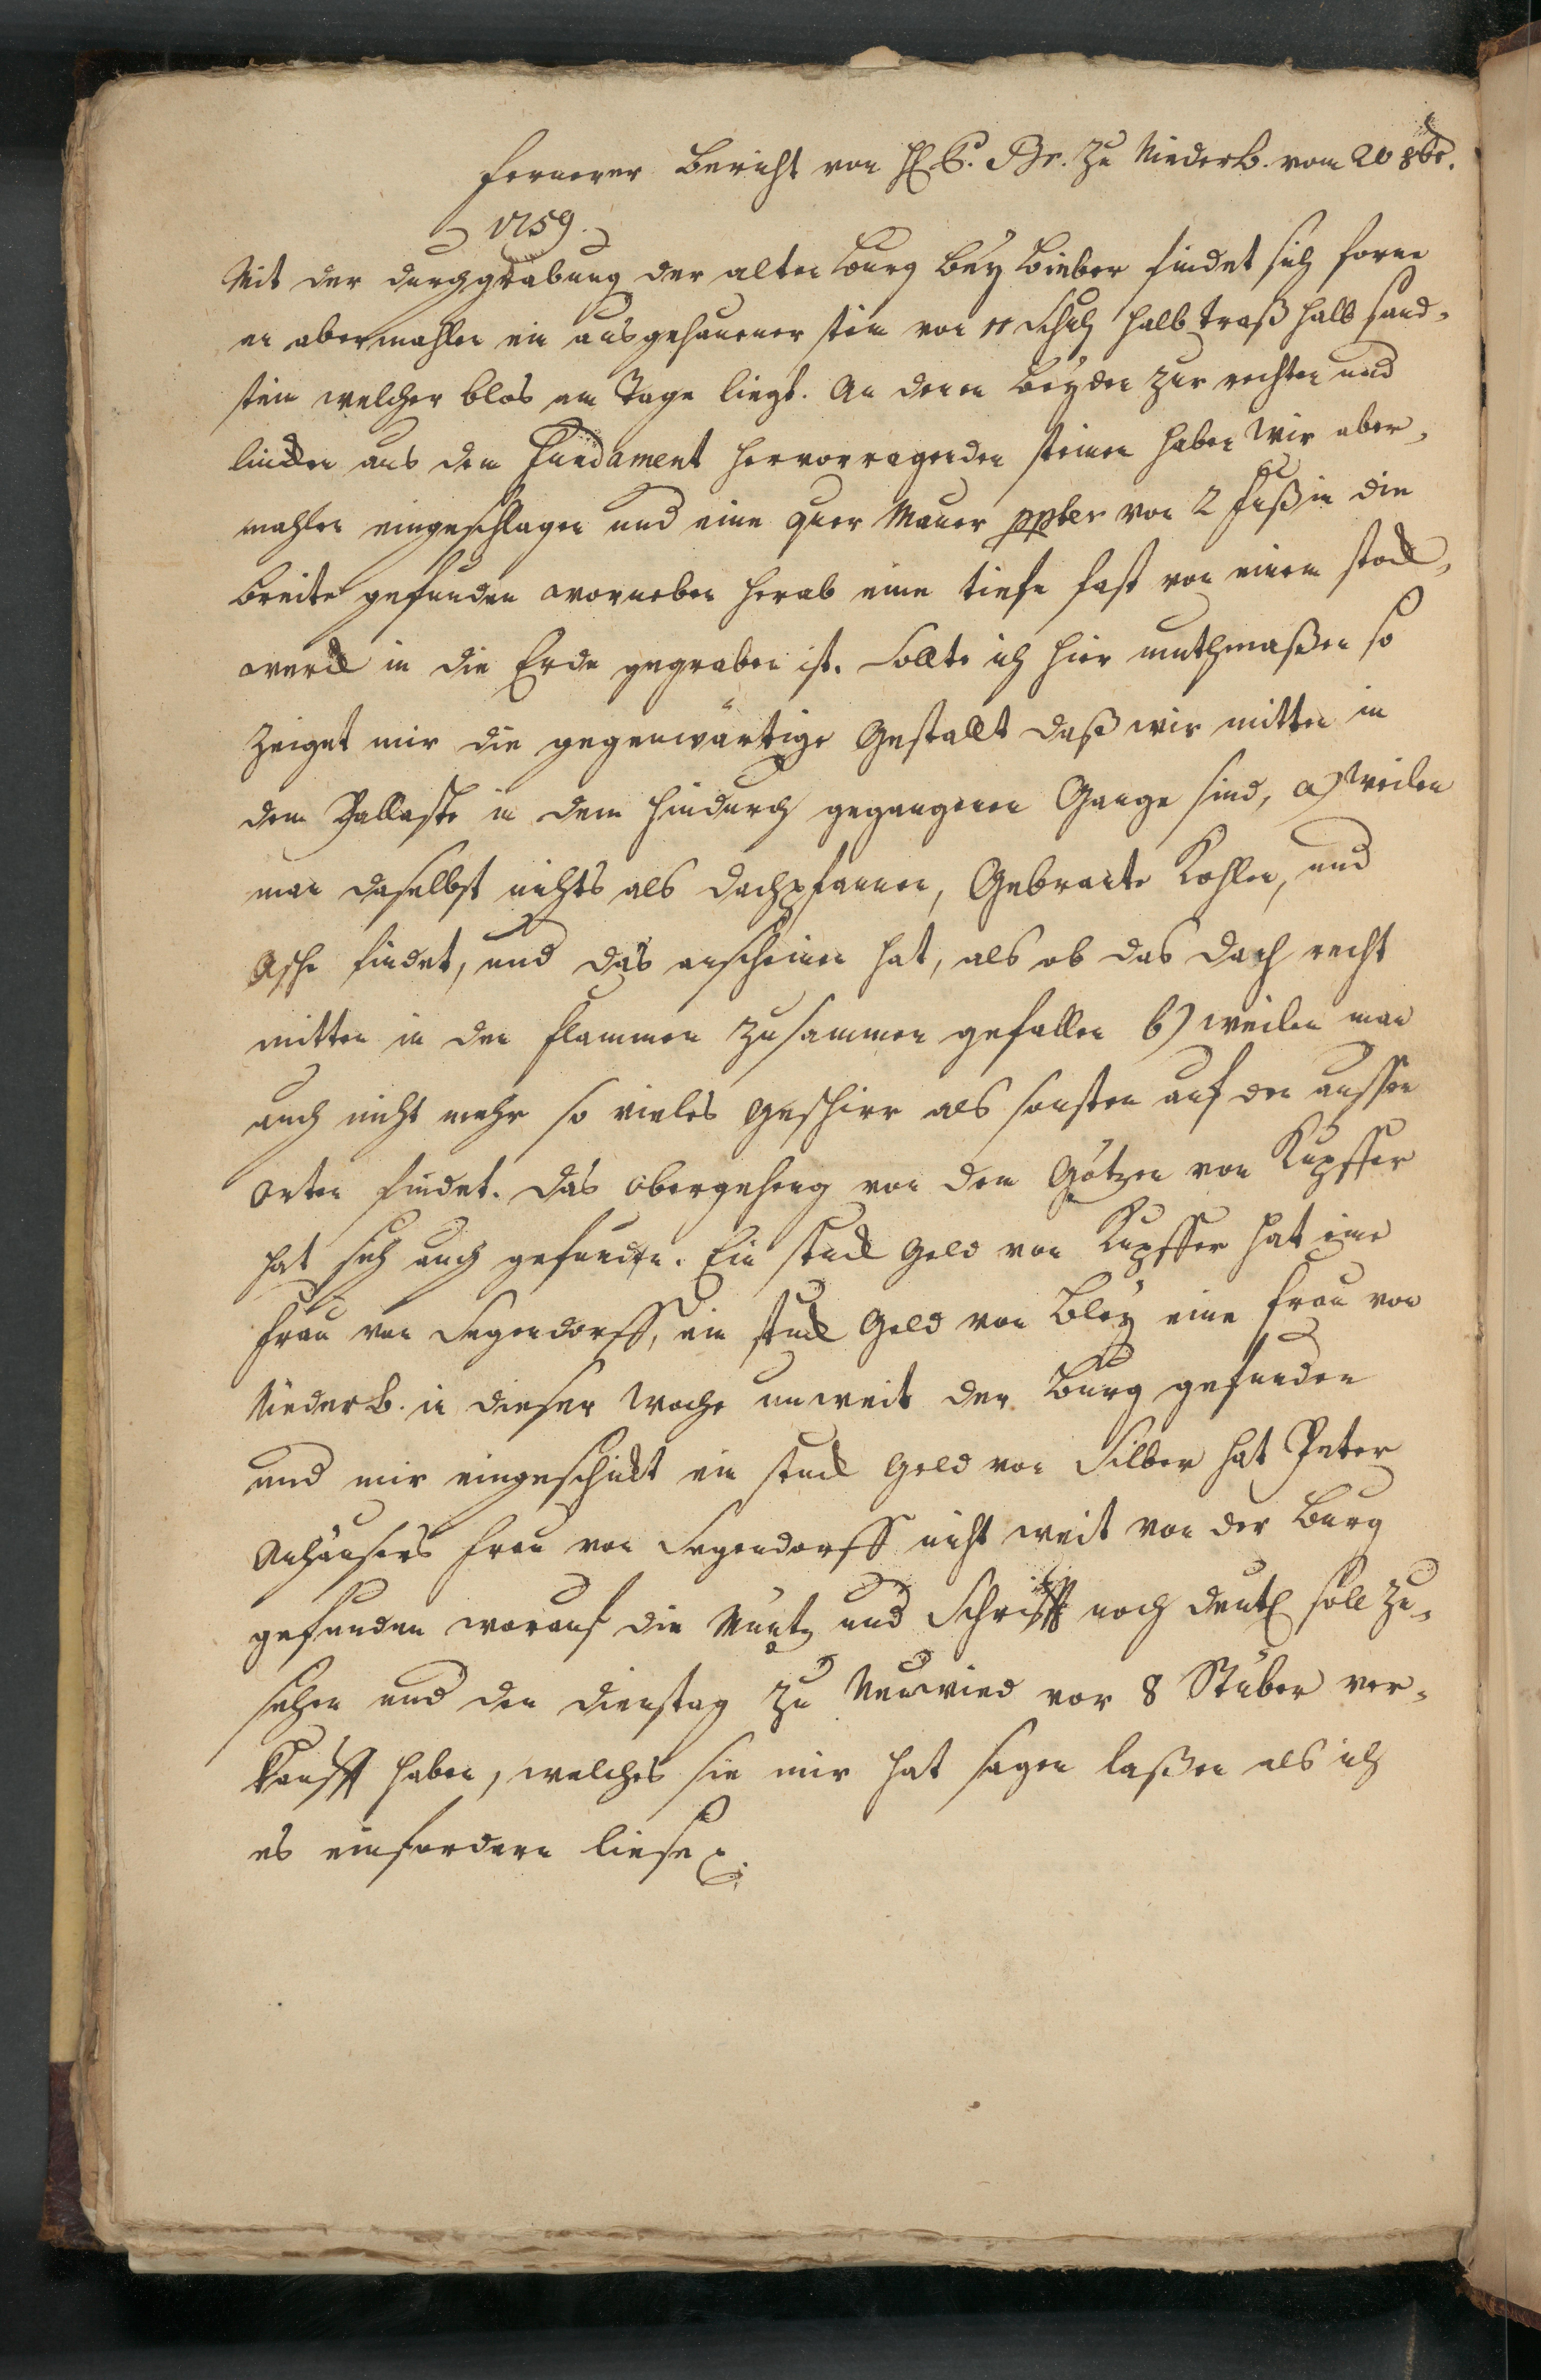 fernerer Bericht von H. C. Br. zu Niederb. vom 20 8br.
1759.
Mit der durchgrabung der alten Burg bey Bieber findet sich forne
an abermahlen ein ausgehauener stein von 11 Schuh halb traß halb sand-
stein welcher blos am Tage liegt. An denen beyden zur rechten und
lincken aus dem Fundament hervorragenden steinen haben wir aber-
mahlen eingeschlagen und eine quer Mauer ppter von 2 fuß in die
breite gefunden worneben herab eine tiefe fast von einem stock-
werck in die Erde gegraben ist. Sollte ich hier muthmaßen so
zeiget mir die gegenwärtige Gestallt daß wir mitten in
dem Pallaste in dem hindurch gegangenen Gange sind, a) weilen
man daselbst nichts als dachpfannen, Gebrante Kohlen, und
Asche findet, und das anscheinen hat, als ob das dach recht
mitten in den flammen zusammen gefallen b) weilen man
auch nicht mehr so vieles geschirr als sonsten auf den aussen
orten findet. Das obergeheng von dem Götzen von Kupffer
hat sich auch gefunden. Ein stuck Geld von Kupffer hat eine
Frau von Segendorff, ein stuck Geld von Bley eine Frau von
Niederb. in dieser Woche unweit der Burg gefunden
und mir eingeschickt ein stuck Geld von Silber hat Peter
Anhäusers Frau von Segendorff nicht weit von der Burg
gefunden worauf die Müntz und Schrifft noch deutl soll zu-
sehen und den Dienstag zu Neuwied vor 8 Stüber ver-
kaufft haben, welches sie mir hat sagen laßen als ich
es einfordern liese